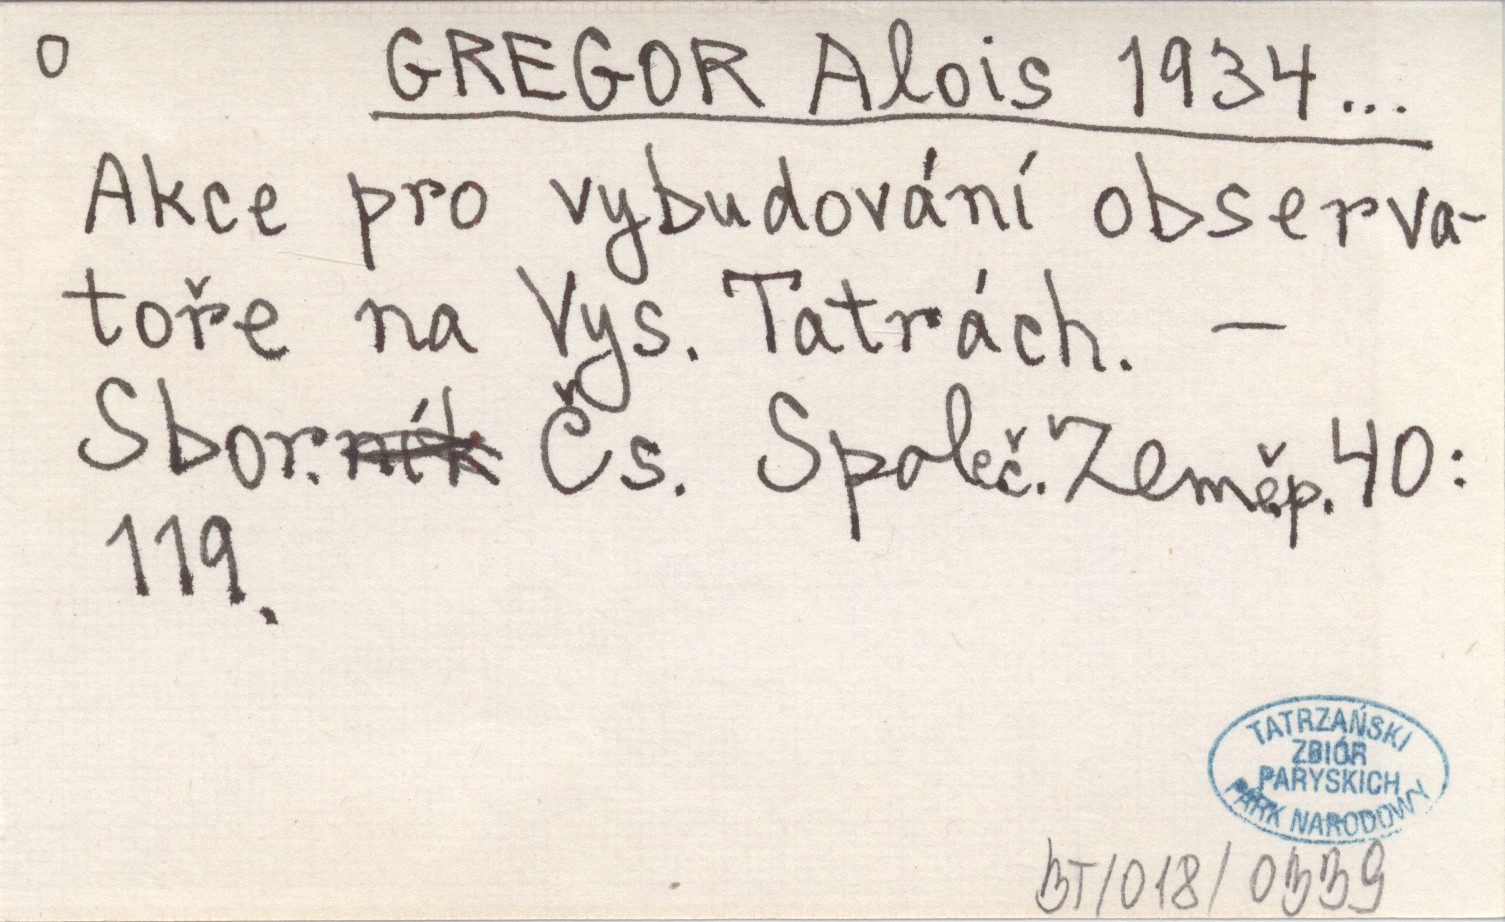 O GREGOR Alois 1934...
Akce pro vybudování observa-
toře na Vys. Tatrách. —
Sbor. Čs. Společ. Zeměp. 40:
119.
TATRZAŃSKI
ZBIÓR
PARYSKICH
PARK NARODOWY
BT/018/0339